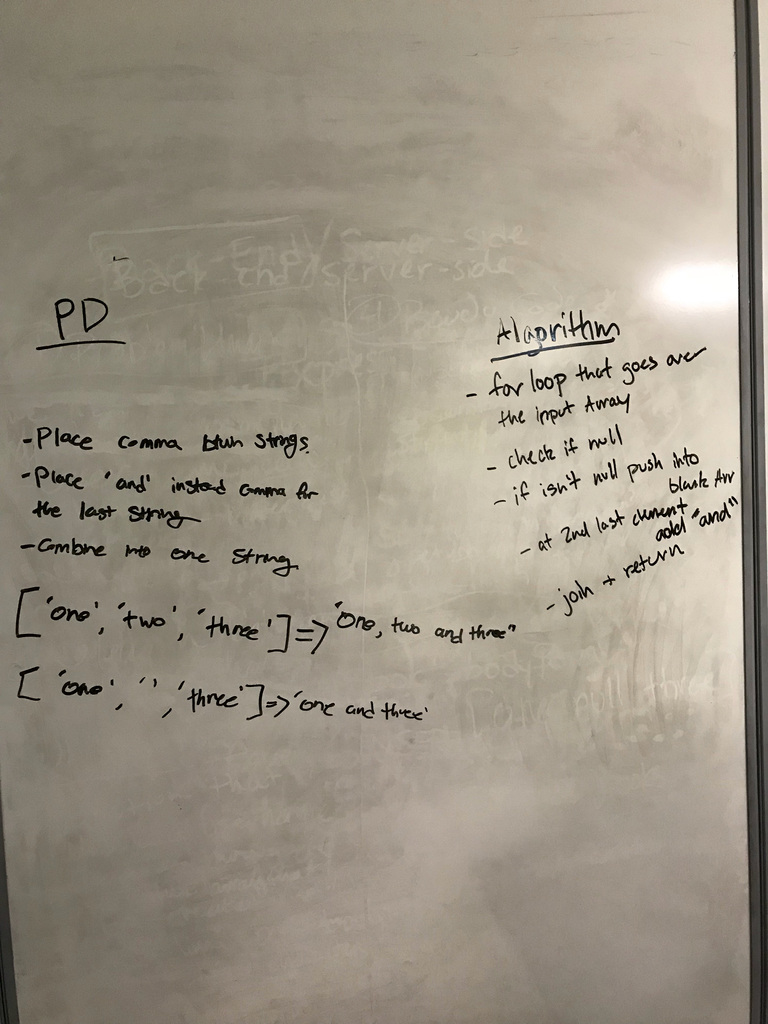 Back-End/Server-side
Back-end/server-side
PD
- Place comma btwn strings.
- Place 'and' instead comma for
the last string
- Combine into one string
['one', 'two', 'three'] => "One, two and three"
['one', '', 'three'] => 'one and three'
Algorithm
- for loop that goes over
the input Array
- check if null
- if isn't null push into
blank Arr
- at 2nd last element
add "and"
- join + return